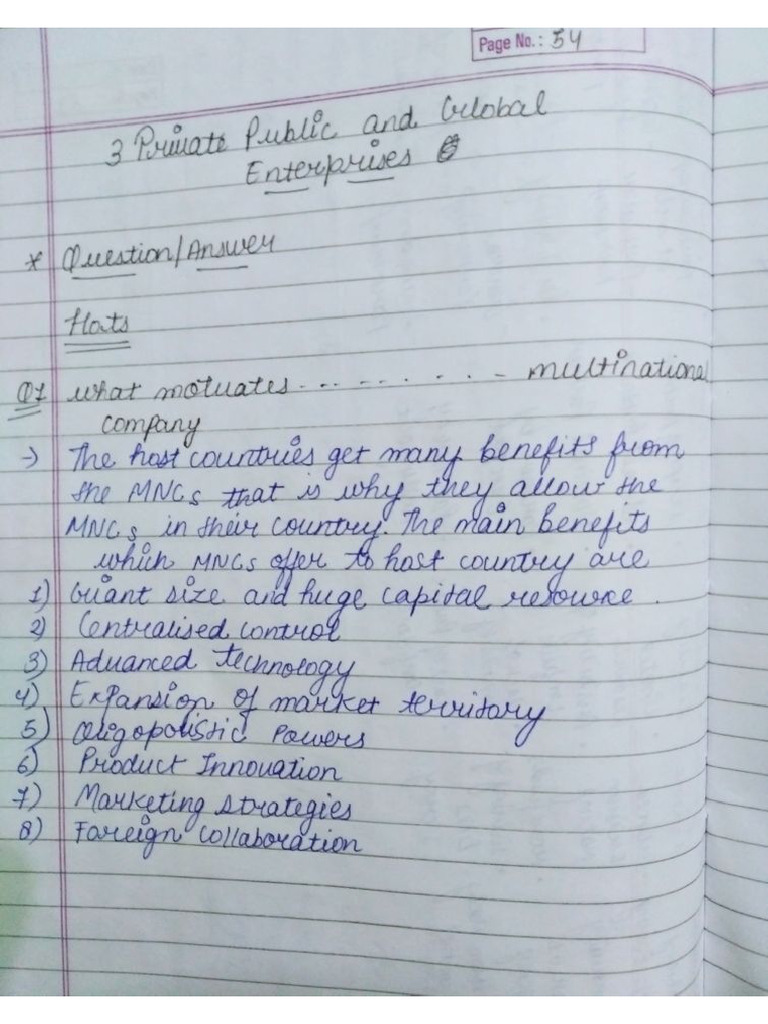 Page No.: 54
3 Private Public and Global
Enterprises
* Question/Answer
Hots
Q1 what motivates - - - - - - - - - multinational
company
→ The host countries get many benefits from
the MNCs that is why they allow the
MNCs in their country. The main benefits
which MNCs offer to host country are
1) Giant size and huge capital resource.
2) Centralised control
3) Advanced technology
4) Expansion of market territory
5) Oligopolistic Powers
6) Product Innovation
7) Marketing strategies
8) Foreign collaboration